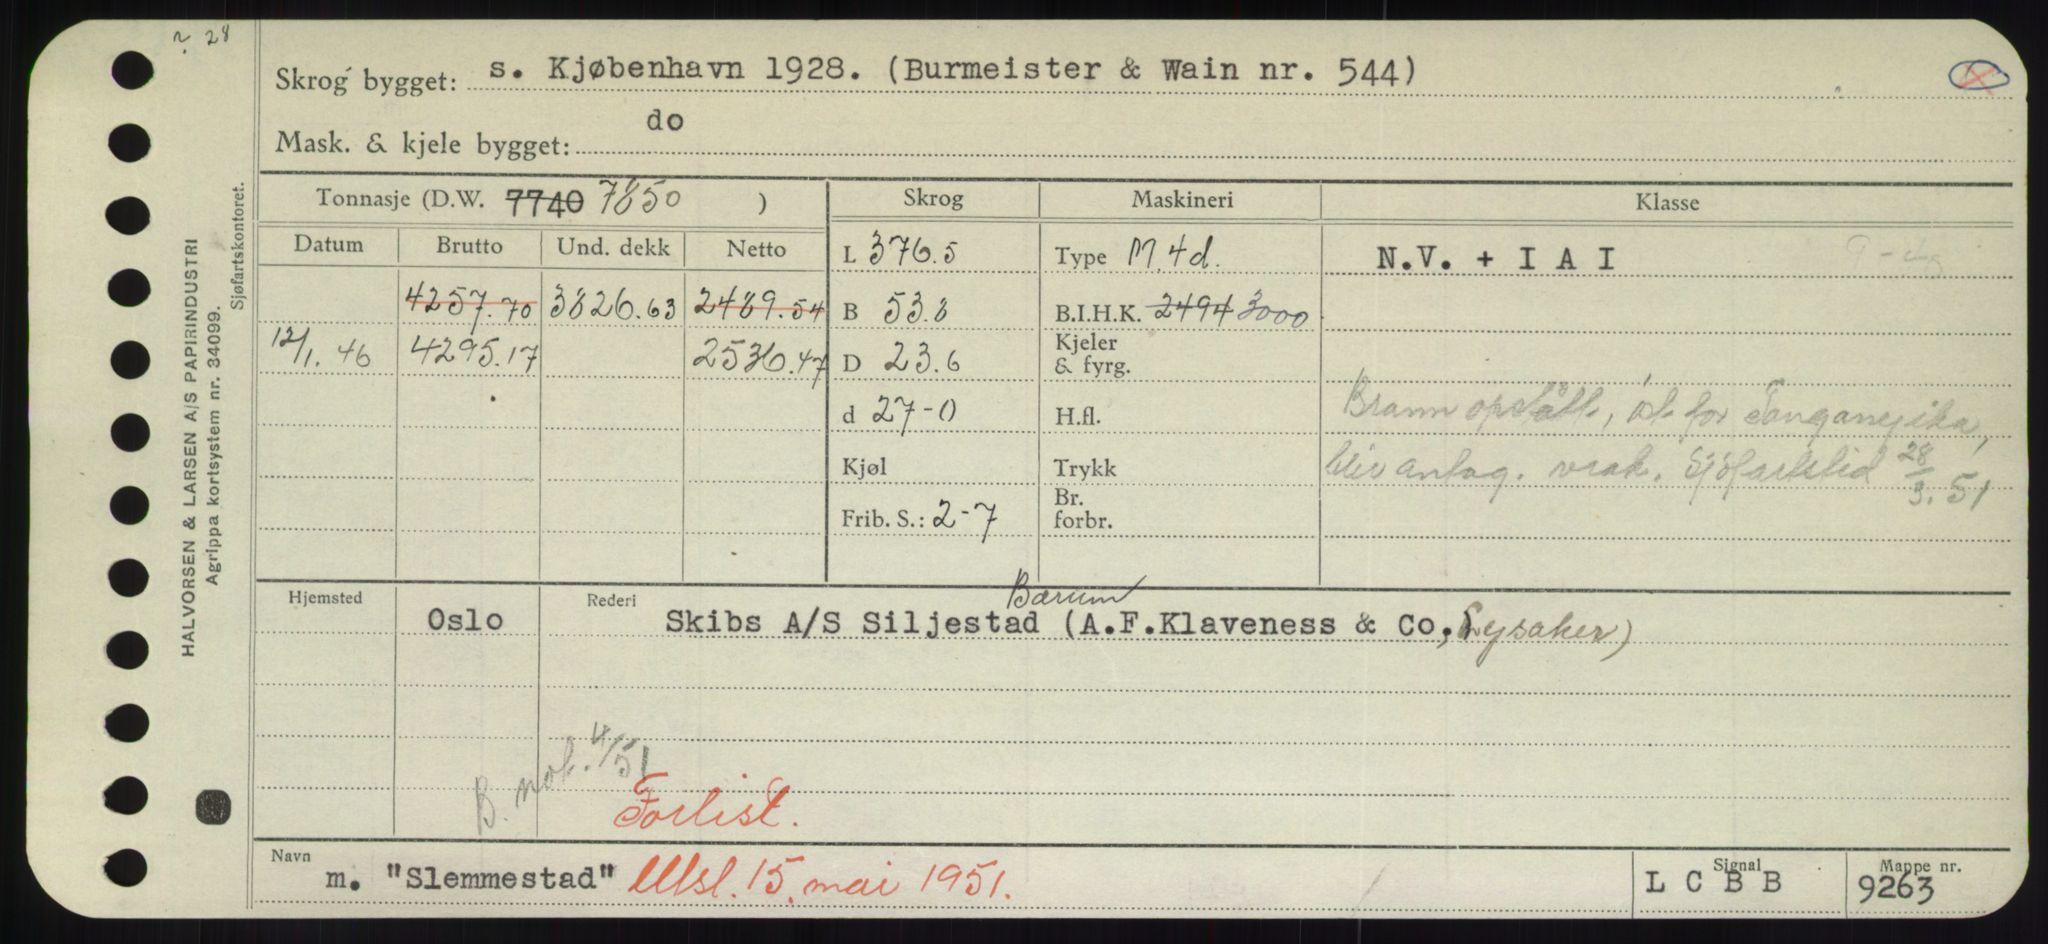 r. 28
Skrog bygget: s. Kjøbenhavn 1928. (Burmeister & Wain nr. 544)
Mask. & kjele bygget: do
Tonnasje (D.W. 7740 7850 )
Skrog
Maskineri
Klasse
Datum
Brutto
Und. dekk
Netto
L 376.5
Type M. 4d.
N.V. + I A I
4257.70
3826.63
2489.54
B 53.8
B.I.H.K. 2494 3000
12/1. 46
4295.17
2536.47
D 23.6
Kjeler
& fyrg.
d 27-0
H.fl.
Brann opstått, øst for Tanganyika,
Kjøl
Trykk
bliv antag. vrak. Sjöfartstid 28/3.51
Frib. S.: 2-7
Br.
forbr.
Hjemsted
Oslo
Rederi
Bærum
Skibs A/S Siljestad (A.F.Klaveness & Co., Lysaker)
B. not. 4/51
Forlist.
Navn
m. "Slemmestad" Utsl. 15. mai 1951.
Signal
L C B B
Mappe nr.
9263
HALVORSEN & LARSEN A/S PAPIRINDUSTRI
Agrippa kortsystem nr. 34099.
Sjøfartskontoret.